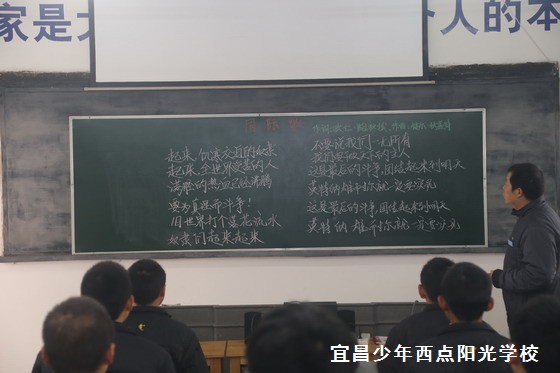 家是大
个人的本
国际歌
起来,饥寒交迫的奴隶
起来,全世界受苦的人
满腔的热血已经沸腾
要为真理而斗争!
旧世界打个落花流水
奴隶们起来起来
不要说我们一无所有
我们要做天下的主人
这是最后的斗争,团结起来到明天
英特纳雄耐尔就一定要实现
这是最后的斗争,团结起来到明天
英特纳雄耐尔就一定要实现
宜昌少年西点阳光学校